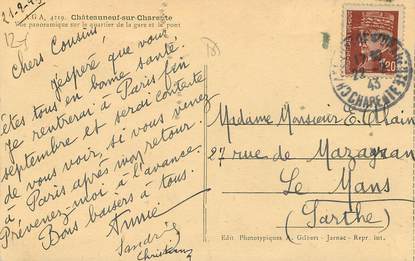 21-9-43
E G A, 4219. Châteauneuf-sur-Charente
Vue panoramique sur le quartier de la gare et le pont
Chers Cousins,
J'espère que vous
êtes tous en bonne santé.
Je rentrerai à Paris fin
septembre et serai contente
de vous voir, si vous venez
à Paris après mon retour.
Prévenez-moi à l'avance.
Bons baisers à tous.
Annie
Madame Monsieur E. Alain
27 rue de Mazagran
Le Mans
(Sarthe)
1.20
22
43
CHARENTE
Edit Phototypiques A. Gilbert - Jarnac - Repr. int.